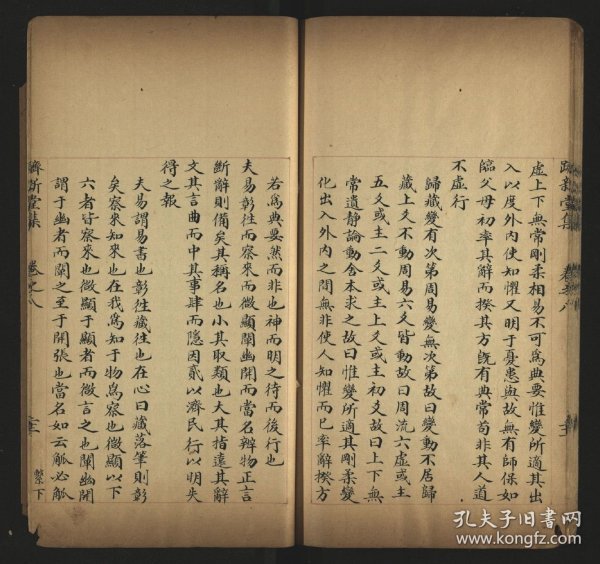 虛上下無常剛柔相易不可爲典要惟變所適其出
入以度外內使知懼又明于憂患與故無有師保如
臨父母初率其辭而揆其方旣有典常苟非其人道
不虛行
歸藏變有次第周易變無次第故曰變動不居歸
藏上爻不動周易六爻皆動故曰周流六虛或主
五爻或主二爻或主上爻或主初爻故曰上下無
常遺靜論動舍本求之故曰惟變所適其剛柔變
化出入外內之間無非使人知懼而已率辭揆方
若爲典要然而非也神而明之待而後行也
夫易彰往而察來而微顯闡幽開而當名辨物正言
斷辭則備矣其稱名也小其取類也大其指遠其辭
文其言曲而中其事肆而隱因貳以濟民行以明失
得之報
夫易謂易書也彰往藏往也在心曰藏落筆則彰
矣察來知來也在我爲知于物爲察也微顯以下
六者皆察來也微顯于顯者而微言之也闡幽開
謂于幽者而闡之至于開張也當名如云觚必觚
繫下
孔夫子旧书网
www.kongfz.com